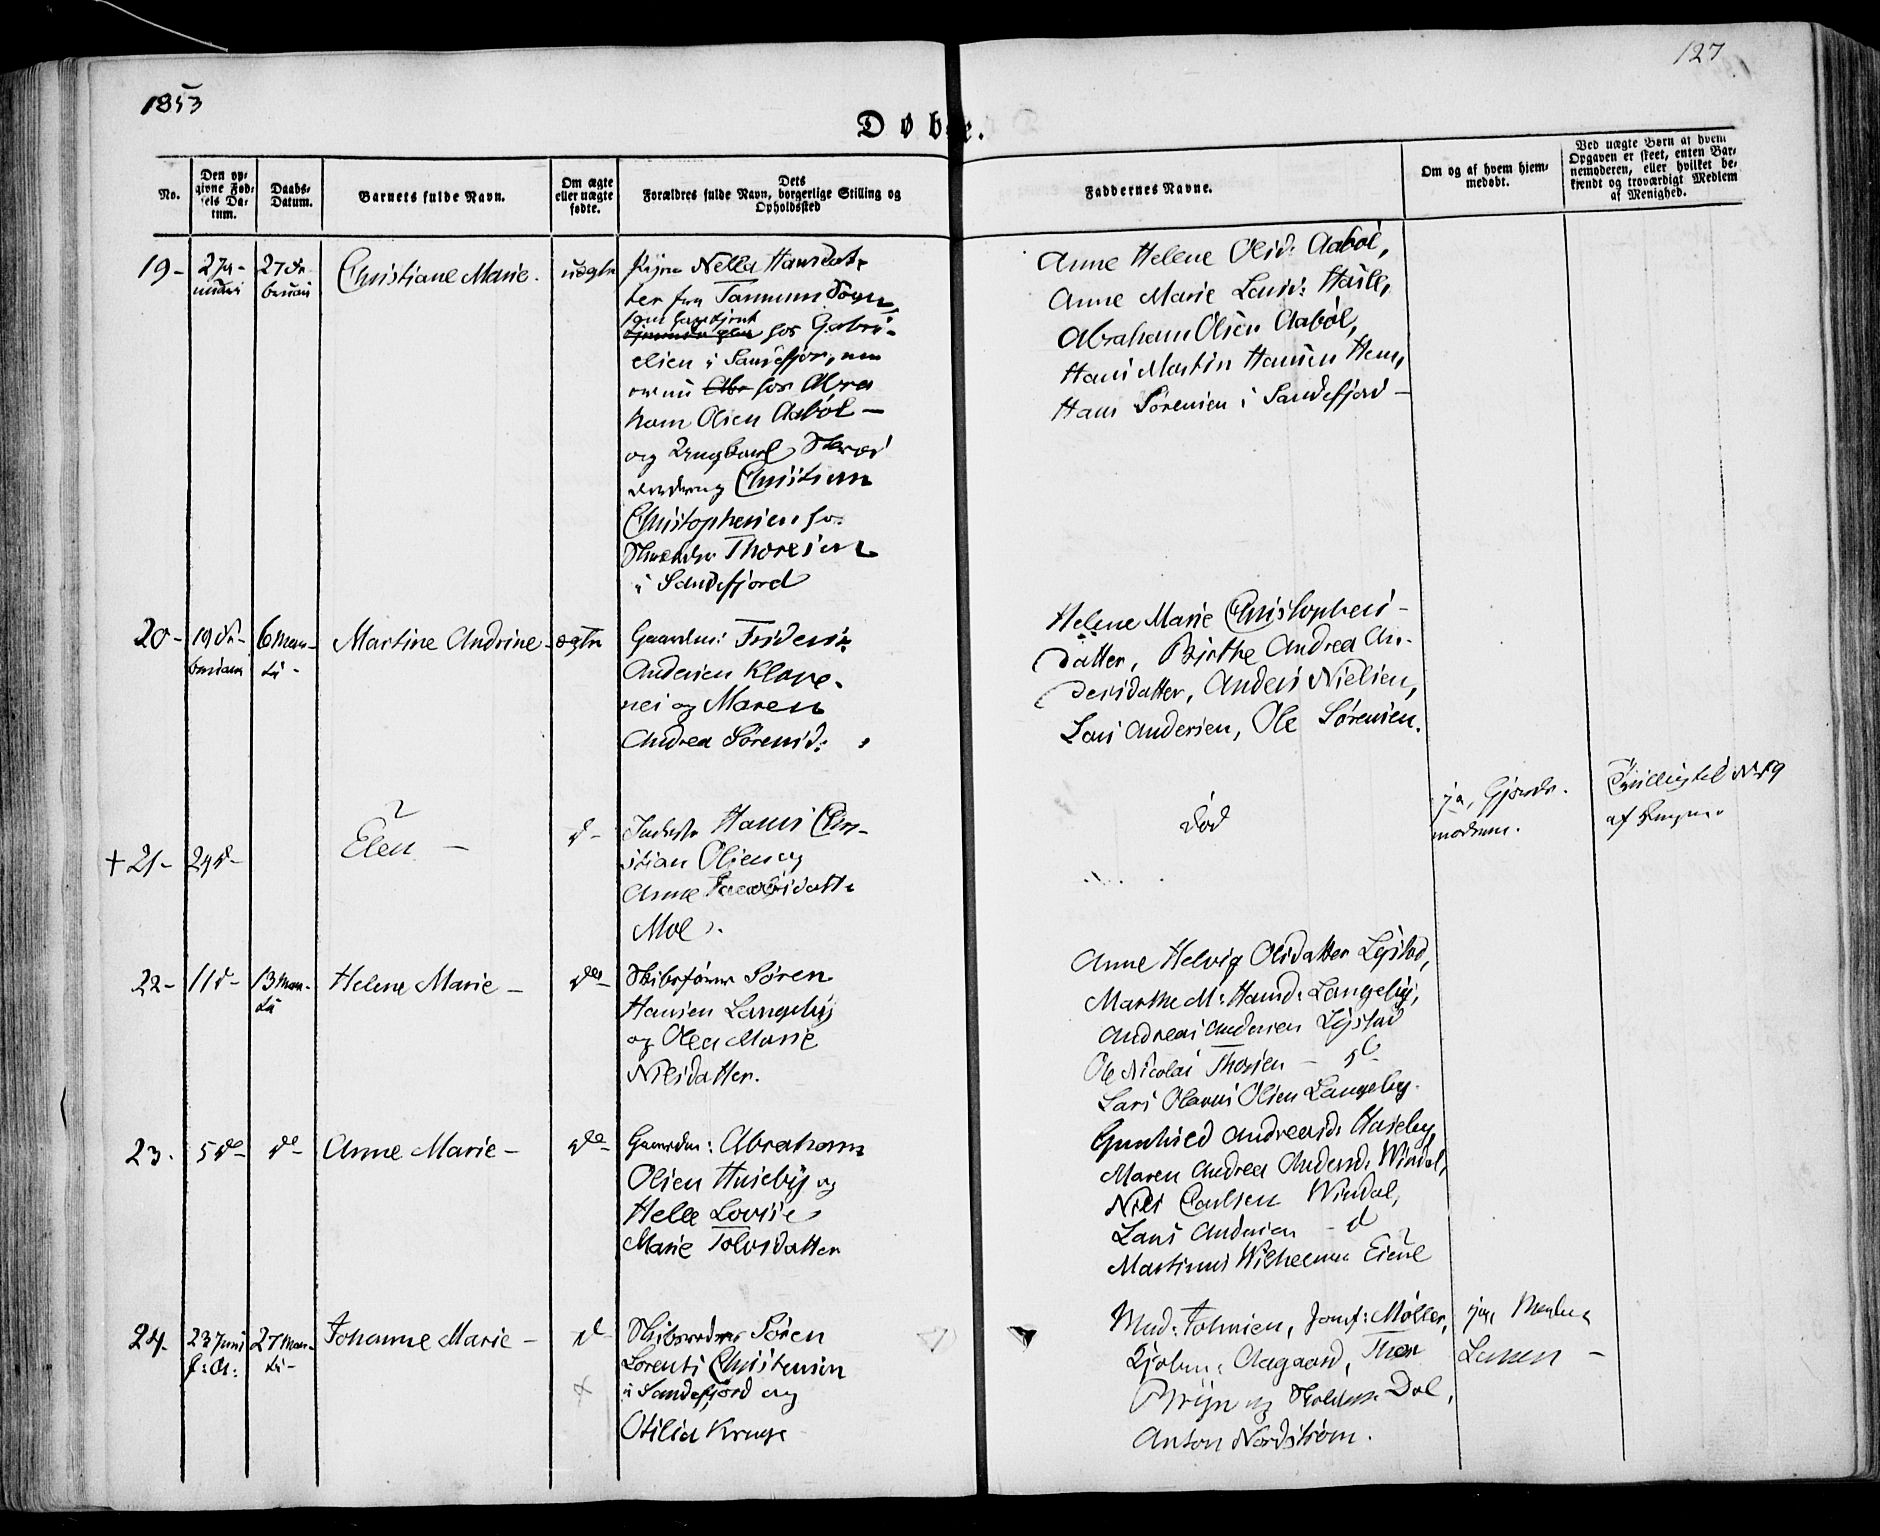 1853
127
Døbte.
No.
Den opgivne Fødsels Datum.
Daabs-Datum.
Barnets fulde Navn.
Om ægte eller uægte fødte.
Dets Forældres fulde Navn, borgerlige Stilling og Opholdssted
Faddernes Navne.
Om og af hvem hjemmedøbt.
Ved uægte Børn af hvem Opgaven er skeet, enten Barnemoderen, eller hvilket bekjendt og troværdigt Medlem af Menighed.
19-
2 Ja-
nuari
27 Fe
bruari
Christiane Marie.
uægte
Pigen Nella Hansdat-
ter fra Tanum Sogn
hos Gabri-
elsen i Sandefjor, men
er nu hos Abra
ham Olsen Aabøl -
og Ungkarl
Christian
Christophersen
Thoresen
i Sandefjord
Anne Helene Olsd: Aabøl,
Anne Marie Larsd:
Abraham Olsen Aabøl,
Hans Martin Hansen Hem,
Hans Sørensen i Sandefjord -
20-
19 Fe-
bruari
6 Mar-
ti -
Martine Andrine-
ægte
Gaardm: Frideri
Andersen Klave-
nes og Maren
Andrea Sørensd:
Helene Marie Christophers-
datter, Birthe Andrea An-
dersdatter, Anders Nielsen,
Lars Andersen, Ole Sørensen.
+ 21-
24 d-
Elen -
d-
Inderste Hans Chri-
stian Olsen og
Anne
Moe.
død
ja, Gjorde-
moderen.
22-
11 d-
13 Mar-
ti
Helene Marie -
do
Skibsfører Søren
Hansen Langeby
og Olea Marie
Nilsdatter.
Anne Helvig Olsdatter Lystad,
Marthe M: Hansd: Langeby,
Andreas Andersen Lystad
Ole Nicolai Thorsen - d
Lars Olavus Olsen Langeby.
23.
5 d-
d-
Anne Marie -
do
Gaardm: Abraham
Olsen Huseby og
Helle Lovise
Marie Tolvsdatter
Gunhild Andreasd: Huseby,
Maren Andrea Andersd: Windal,
Nils Paulsen Windal,
Lars Andersen - d
Martinus Wilhelmsen
24.
23 Juni
f: A:
27 Mar-
ti-
Johanne Marie -
d-
Søren
Lorents Christensen
i Sandefjord og
Otilia Kruge
Mad: Johnsen, Jomf: Møller,
Kjøbm: Aagaard, Thor
Bryn og Dal,
Anton Nordstrøm.
ja,
Larsen -